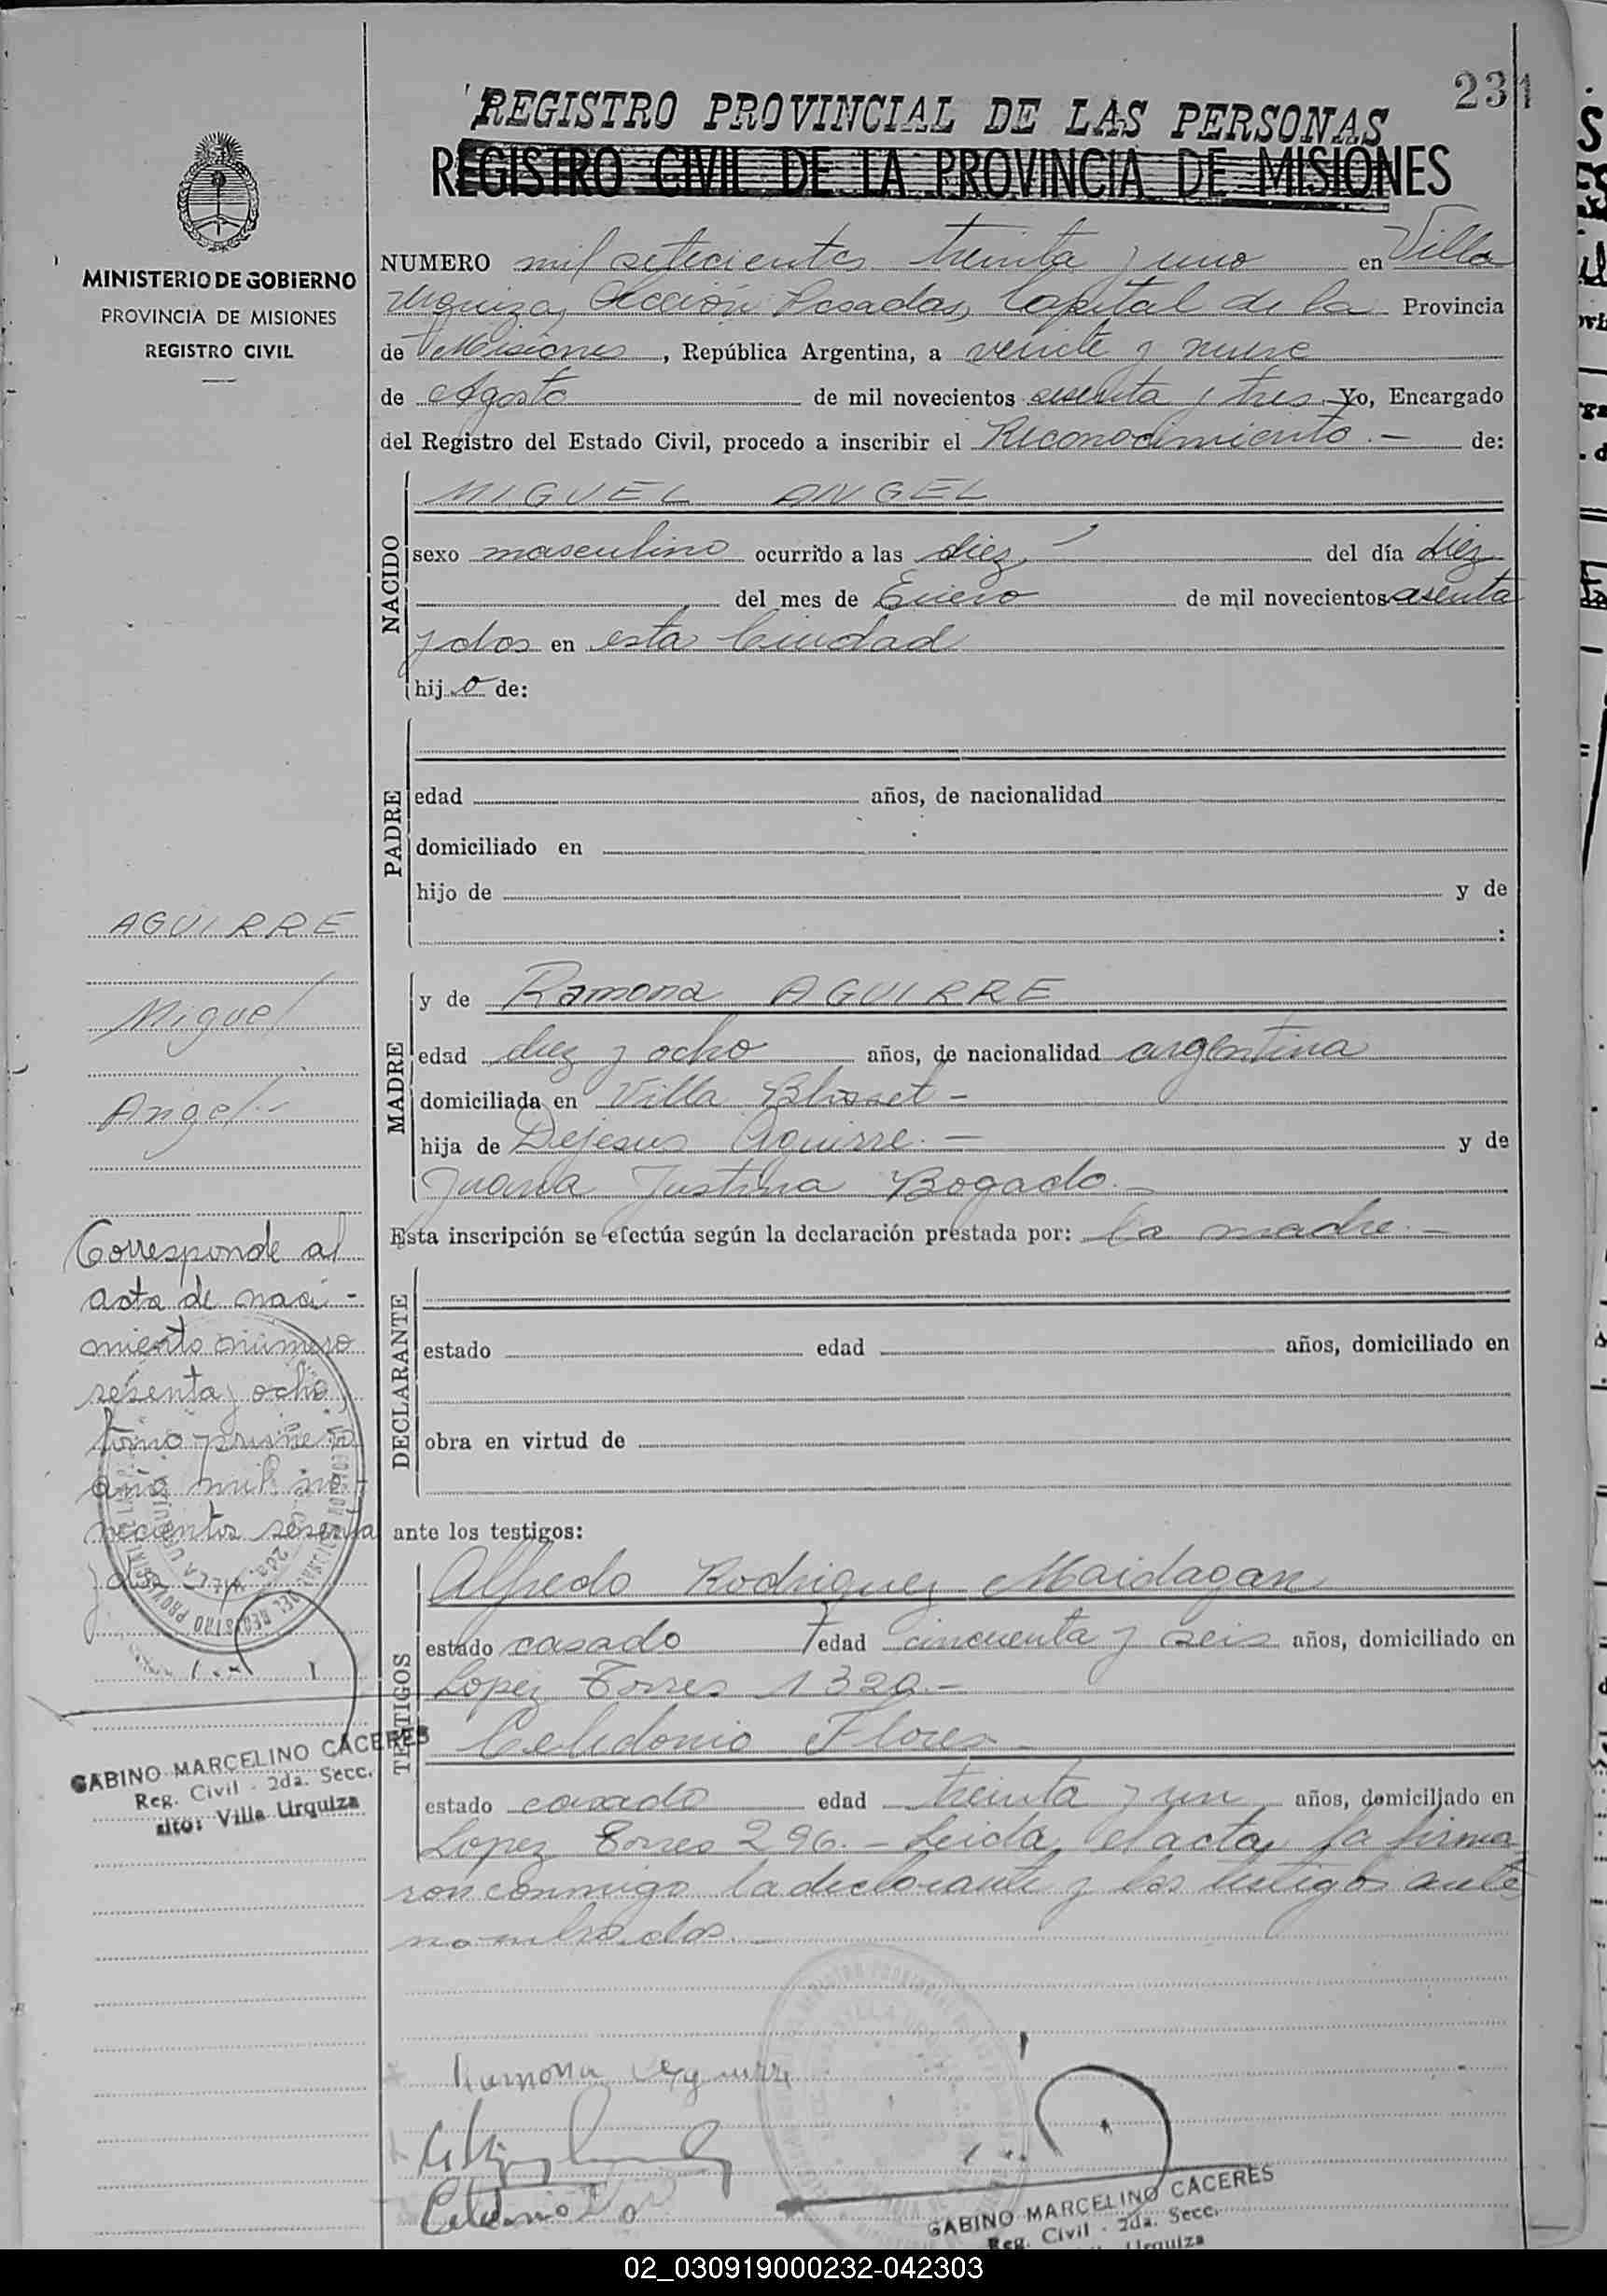 231
REGISTRO PROVINCIAL DE LAS PERSONAS
REGISTRO CIVIL DE LA PROVINCIA DE MISIONES
MINISTERIO DE GOBIERNO
PROVINCIA DE MISIONES
REGISTRO CIVIL
NUMERO mil setecientos treinta y uno en Villa
Urquiza, Sección Posadas, Capital de la Provincia
de Misiones, República Argentina, a veinte y nueve
de Agosto de mil novecientos sesenta y tres. Yo, Encargado
del Registro del Estado Civil, procedo a inscribir el Reconocimiento.- de:
NACIDO
MIGUEL ANGEL
sexo masculino ocurrido a las diez, del día diez
del mes de Enero de mil novecientos sesenta
y dos en esta Ciudad
hijo de:
PADRE
edad años, de nacionalidad
domiciliado en
hijo de y de
:
MADRE
y de Ramona AGUIRRE
edad diez y ocho años, de nacionalidad argentina
domiciliada en Villa Blosset -
hija de Dejesus Aguirre.- y de
Juana Justina Bogado.-
Esta inscripción se efectúa según la declaración prestada por: la madre.-
DECLARANTE
estado edad años, domiciliado en
obra en virtud de
ante los testigos:
TESTIGOS
Alfredo Rodriguez Maidagan
estado casado edad cincuenta y seis años, domiciliado en
Lopez Torres 1320.-
Celedonio Flores
estado casado edad treinta y un años, domiciliado en
Lopez Torres 296.- Leida el acta, la firma
ron conmigo la declarante y los testigos ante
nombrados.-
AGUIRRE
Miguel
Angel.-
Corresponde al
acta de naci-
miento número
sesenta y ocho,
tomo primero
año mil no
vecientos sesenta
y dos
GABINO MARCELINO CACERES
Reg. Civil - 2da. Secc.
Villa Urquiza
Ramona Aguirre
GABINO MARCELINO CACERES
Reg. Civil - 2da. Secc.
Urquiza
02_030919000232-042303